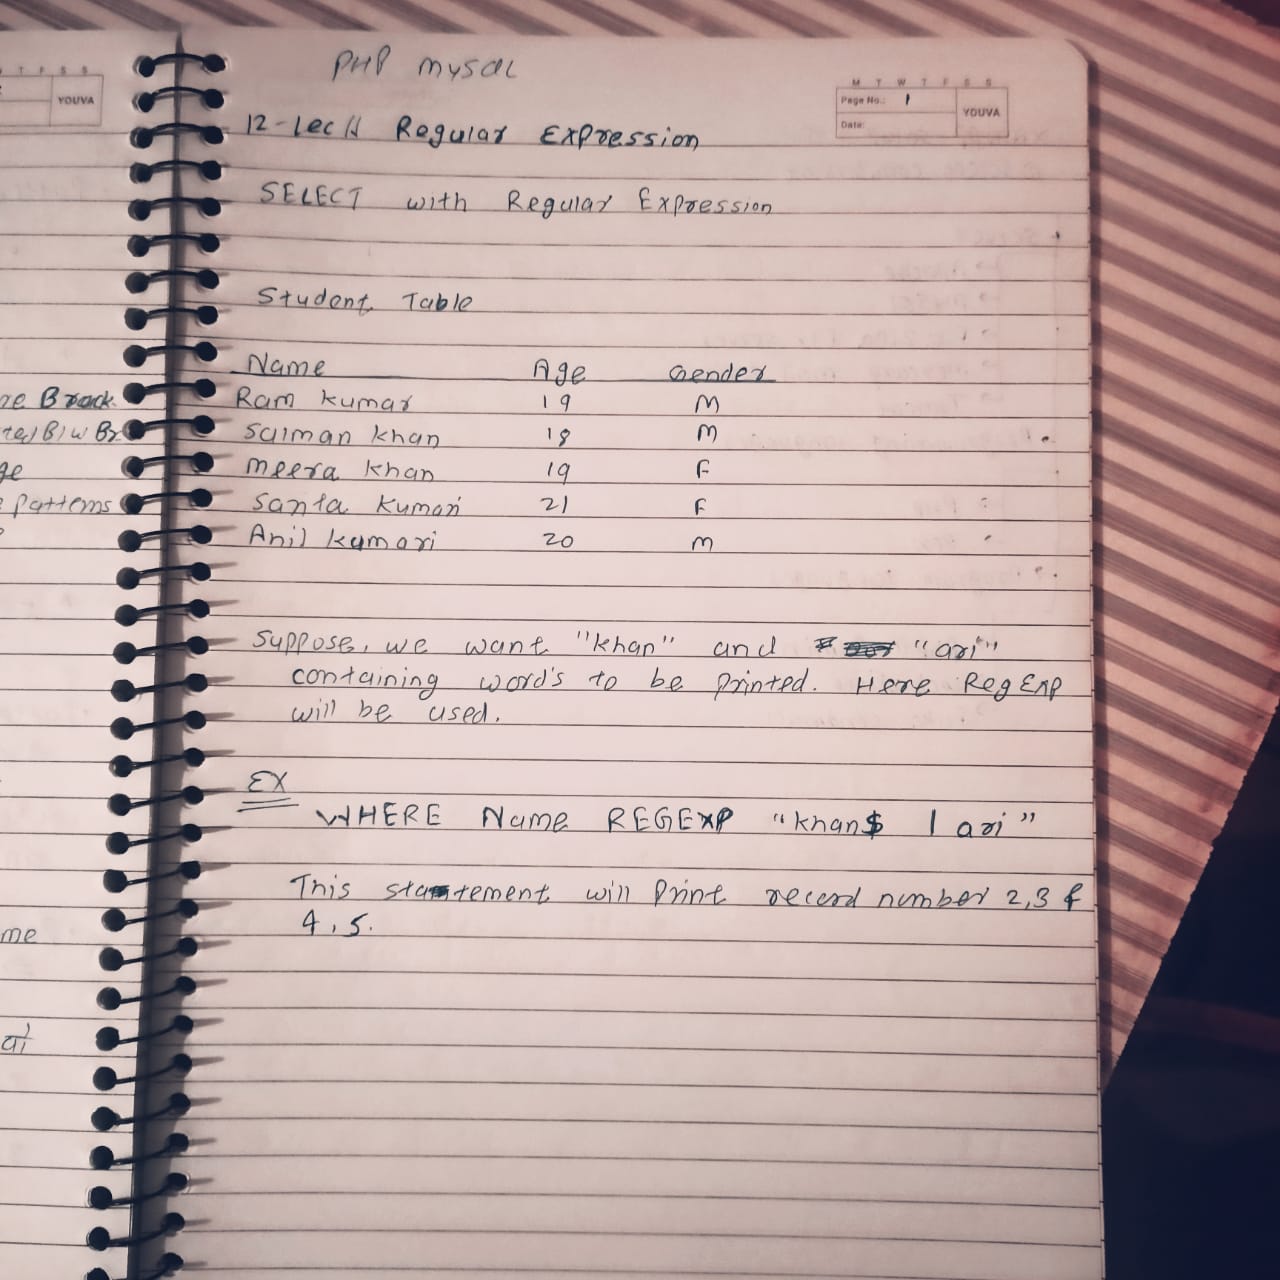 PHP mysql
M T W T F S S
Page No.: 1
Date:
YOUVA
T F S S
YOUVA
12-Lec // Regular Expression
SELECT with Regular Expression
Student Table
Name Age Gender
Ram kumar 19 M
Salman khan 18 M
meera khan 19 F
santa kumari 21 F
Anil kumari 20 M
Suppose, we want "khan" and "ari"
containing word's to be printed. Here RegExp
will be used.
EX
WHERE Name REGEXP "khan$ | ari"
This statement will print record number 2,3 &
4,5.
ge
patterns
me